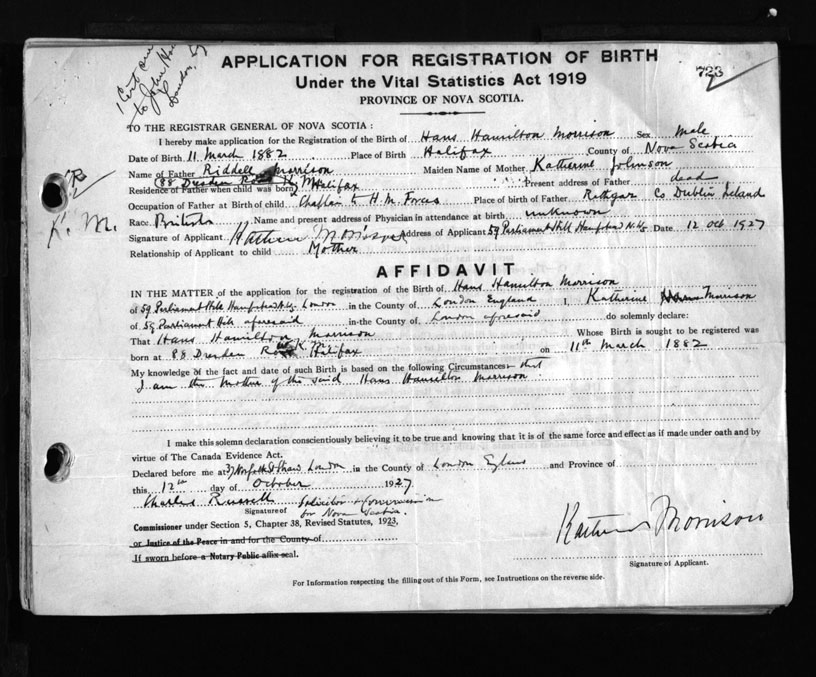 1 Cert
to John
London
APPLICATION FOR REGISTRATION OF BIRTH
Under the Vital Statistics Act 1919
723
PROVINCE OF NOVA SCOTIA.
TO THE REGISTRAR GENERAL OF NOVA SCOTIA:
I hereby make application for the Registration of the Birth of Hans Hamilton Morrison Sex Male
Date of Birth 11 March 1882 Place of Birth Halifax County of Nova Scotia
Name of Father Riddell Morrison Maiden Name of Mother Katherine Johnson
Residence of Father when child was born 88 Dresden Row Halifax Present address of Father dead
Occupation of Father at Birth of child Chaplain to H.M. Forces Place of birth of Father Rathgar Co Dublin Ireland
K. M.
Race British Name and present address of Physician in attendance at birth unknown
Signature of Applicant Katherine Morrison Address of Applicant 59 Parliament Hill Hampstead N.W. Date 12 Oct 1927
Relationship of Applicant to child Mother
AFFIDAVIT
IN THE MATTER of the application for the registration of the Birth of Hans Hamilton Morrison
of 59 Parliament Hill Hampstead London in the County of London England I, Katherine Morrison
of 59 Parliament Hill aforesaid in the County of London aforesaid do solemnly declare:
That Hans Hamilton Morrison Whose Birth is sought to be registered was
born at 88 Dresden Row Halifax on 11th March 1882
My knowledge of the fact and date of such Birth is based on the following Circumstances that
I am the Mother of the said Hans Hamilton Morrison
I make this solemn declaration conscientiously believing it to be true and knowing that it is of the same force and effect as if made under oath and by
virtue of The Canada Evidence Act.
Declared before me at 37 Norfolk St Strand London in the County of London and Province of
this 12th day of October 1927
Charles Russell Solicitor &
Signature of for Nova Scotia.
Commissioner under Section 5, Chapter 38, Revised Statutes, 1923,
or Justice of the Peace in and for the County of
If sworn before a Notary Public affix seal.
Katherine Morrison
Signature of Applicant.
For Information respecting the filling out of this Form, see Instructions on the reverse side.